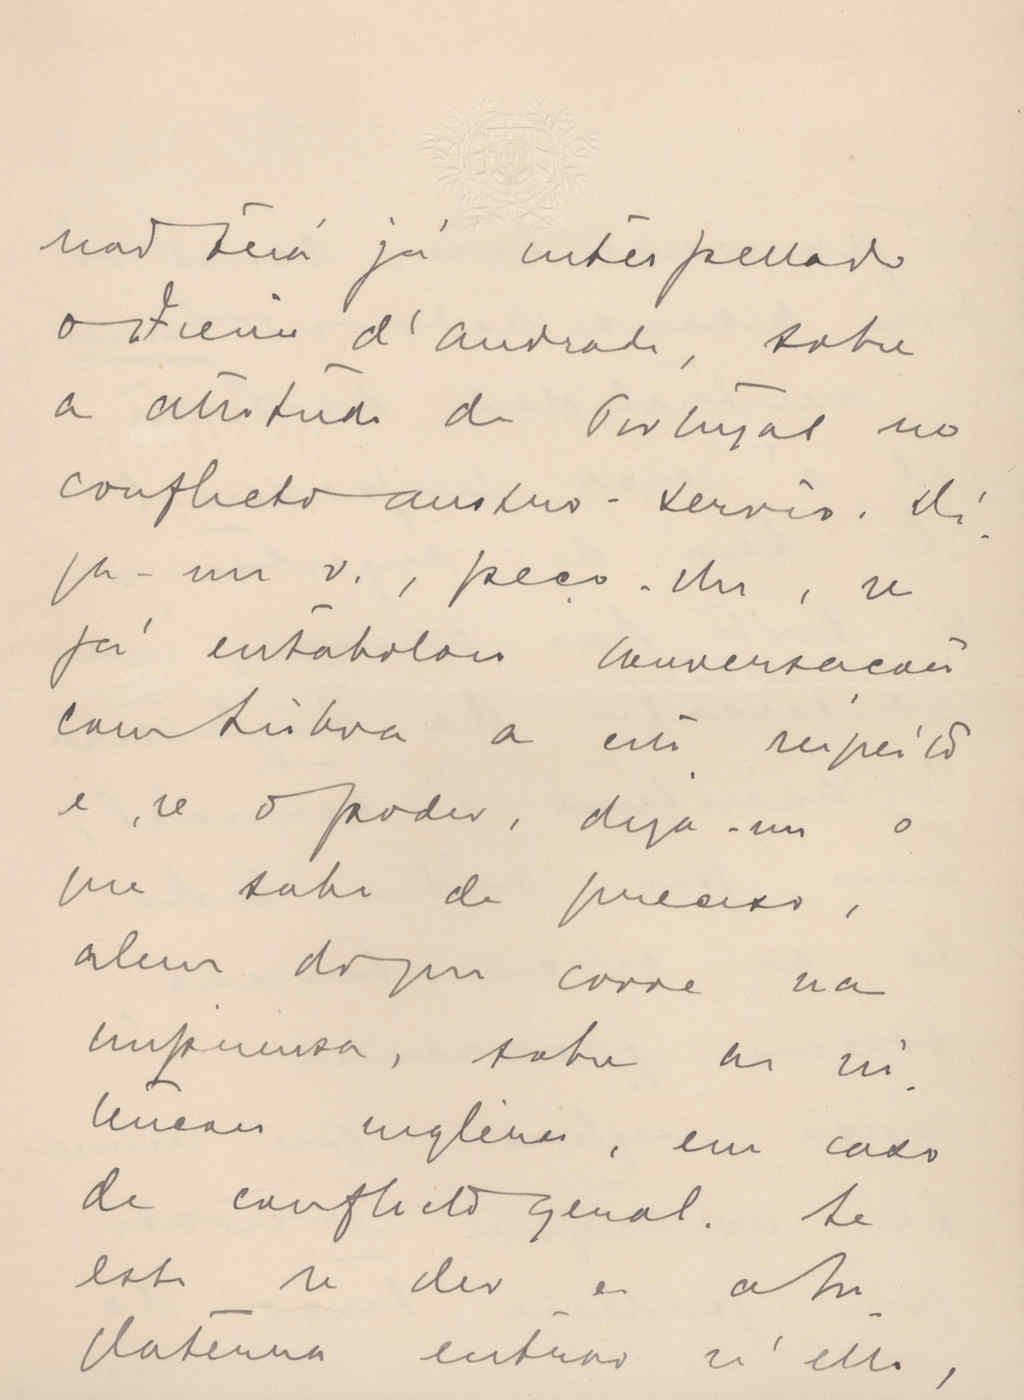 não terá já interpellado
o Freire d'Andrade, sobre
a attitude de Portugal no
conflicto austro-servio. Di-
ga-me v., peço-lhe, se
já entabolou conversações
com Lisboa a este respeito
e, se o poder, diga-me o
que sabe de preciso,
alem do que corre na
imprensa, sobre as in-
tenções inglezas, em caso
de conflicto geral. Se
este se der e a In-
glaterra entrar n'elle,